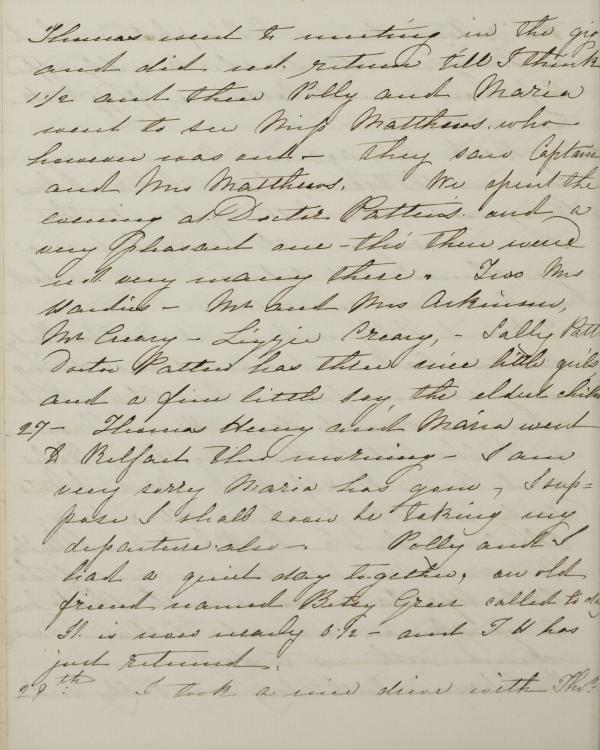 Thomas went to meeting in the gig
and did not return till I think
1 1/2 and then Polly and Maria
went to see Miss Matthews. who
however was out - they saw Captain
and Mrs Matthews. We spent the
evening at Doctor Patten's and a
very pleasant one - tho' there were
not very many there. Two Mrs
- Mr and Mrs Arkinson,
Mr Creary - Lizzie Creary, - Sally Patt
Doctor Patten has three nice little girls
and a fine little boy the eldest child
27 - Thomas Henry and Maria went
to Belfast this morning - I am
very sorry Maria has gone, I sup=
pose I shall soon be taking my
departure also - Polly and I
had a quiet day together, an old
friend named Betsy Green called to day
It is now nearly 6 1/2 - and T H has
just returned.
28th. I took a nice drive with Thos.